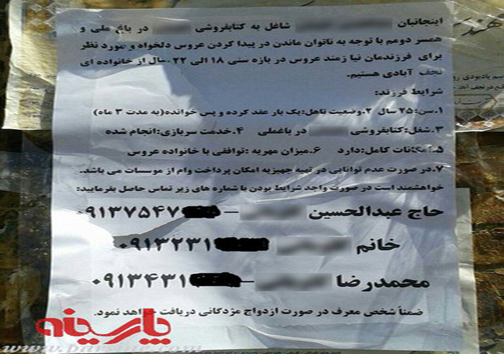 اینجانبان شاغل به کتابفروشی در باغ ملی و
همسر دومم با توجه به ناتوان ماندن در پیدا کردن عروس دلخواه و مورد نظر
برای فرزندمان نیازمند عروس در بازه سنی ۱۸ الی ۲۲ سال از خانواده ای
نجف آبادی هستیم.
شرایط فرزند:
۱.سن:۲۵ سال ۲.وضعیت تاهل:یک بار عقد کرده و پس خوانده(به مدت ۳ ماه)
۳.شغل:کتابفروشی در باغملی ۴.خدمت سربازی:انجام شده
۵.امکانات کامل:دارد ۶.میزان مهریه:توافقی با خانواده عروس
۷.در صورت عدم توانایی در تهیه جهیزیه امکان پرداخت وام از موسسات می باشد.
خواهشمند است در صورت واجد شرایط بودن با شماره های زیر تماس حاصل بفرمایید:
حاج عبدالحسین -۰۹۱۳۷۵۴۷
خانم ۰۹۱۳۲۳۱
محمدرضا -۰۹۱۳۴۳۱
ضمناً شخص معرف در صورت ازدواج مژدگانی دریافت خواهد نمود.
پارسینه